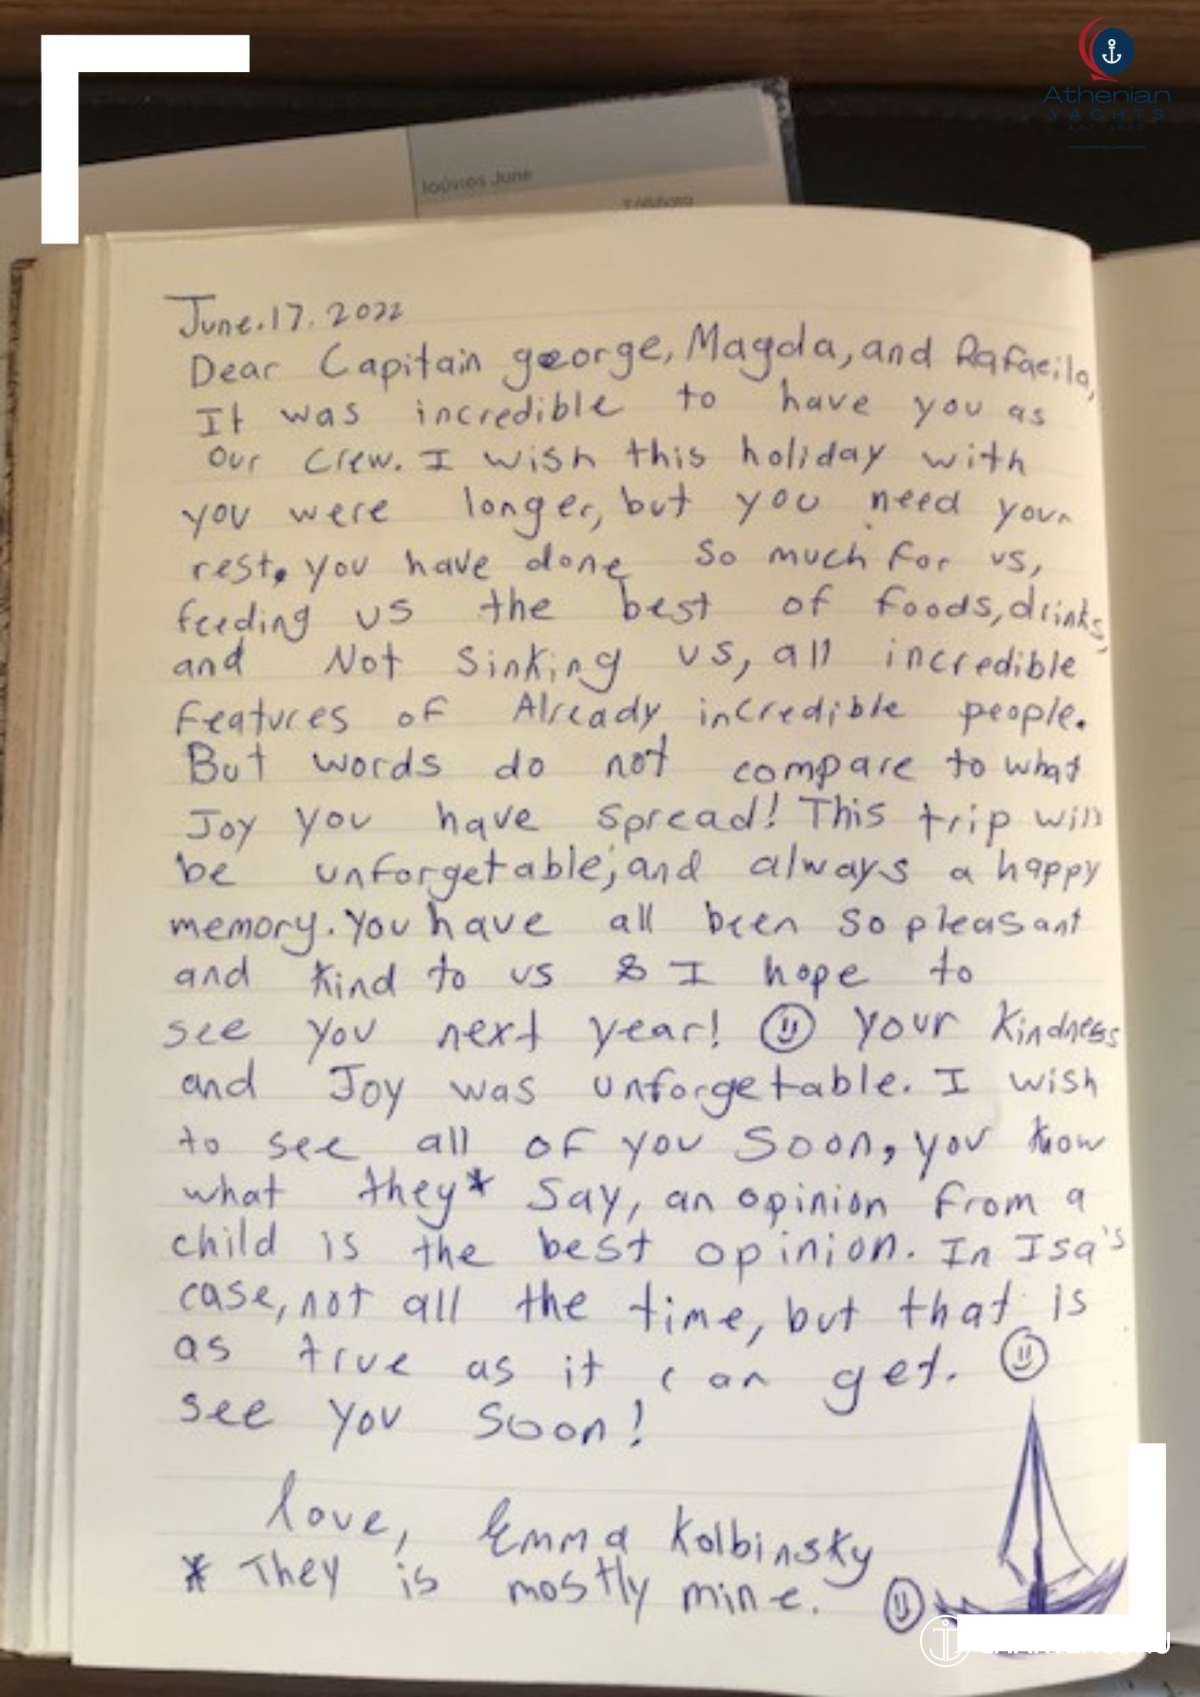 Athenian
YACHTS
Ιούνιος June
June.17.2022
Dear Capitain george, Magda, and Rafaeila,
It was incredible to have you as
our crew. I wish this holiday with
you were longer, but you need your
rest. you have done so much for us,
feeding us the best of foods, drinks,
and Not Sinking us, all incredible
features of Already incredible people.
But words do not compare to what
Joy you have spread! This trip will
be unforgetable, and always a happy
memory. You have all been so pleasant
and kind to us & I hope to
see you next year! your kindness
and Joy was unforgetable. I wish
to see all of you soon, you know
what they* say, an opinion from a
child is the best opinion. In Isa's
case, not all the time, but that is
as true as it can get.
see you soon!
love, Emma Kolbinsky
* They is mostly mine.